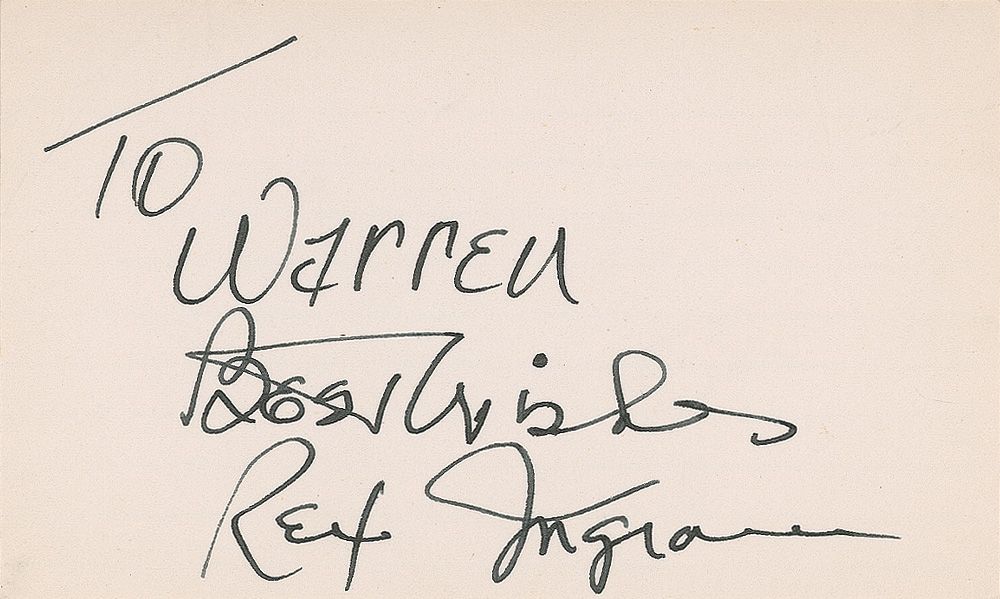 To
Warren
Best Wishes
Rex Ingram